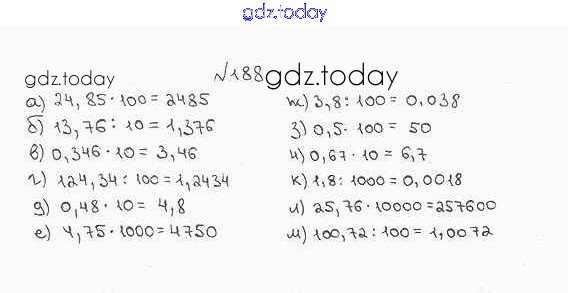 gdz.today
gdz.today
№188
gdz.today
а) 24,85·100=2485
б) 13,76:10=1,376
в) 0,346·10=3,46
г) 124,34:100=1,2434
д) 0,48·10=4,8
е) 4,75·1000=4750
ж) 3,8:100=0,038
з) 0,5·100=50
и) 0,67·10=6,7
к) 1,8:1000=0,0018
л) 25,76·10000=257600
м) 100,72:100=1,0072